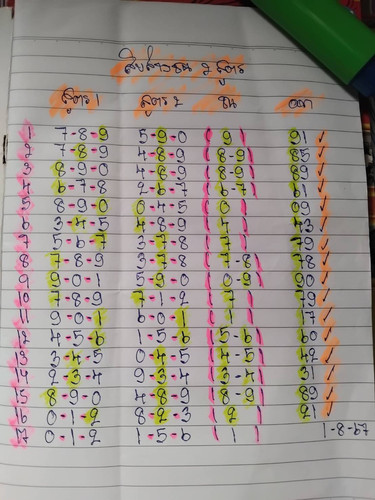 สิบสาวชน 2 สูตร
สูตร 1 สูตร 2 ชน ออก
1 7-8-9 5-9-0 (9) 91 ✓
2 7-8-9 4-8-9 (8-9) 85 ✓
3 8-9-0 4-8-9 (8-9) 89 ✓
4 6-7-8 2-6-7 (6-7) 61 ✓
5 8-9-0 0-4-5 (0) 09 ✓
6 3-4-5 4-8-9 (4) 43 ✓
7 5-6-7 3-7-8 (7) 79 ✓
8 7-8-9 3-7-8 (7-8) 78 ✓
9 9-0-1 5-9-0 (0-9) 90 ✓
10 7-8-9 7-1-2 (7) 79 ✓
11 9-0-1 6-0-1 (1) 17 ✓
12 4-5-6 1-5-6 (5-6) 60 ✓
13 3-4-5 0-4-5 (4-5) 42 ✓
14 2-3-4 9-3-4 (3-4) 31 ✓
15 8-9-0 4-8-9 (8-9) 89 ✓
16 0-1-2 8-2-3 (2) 21 ✓
17 0-1-2 1-5-6 (1) 1-8-67